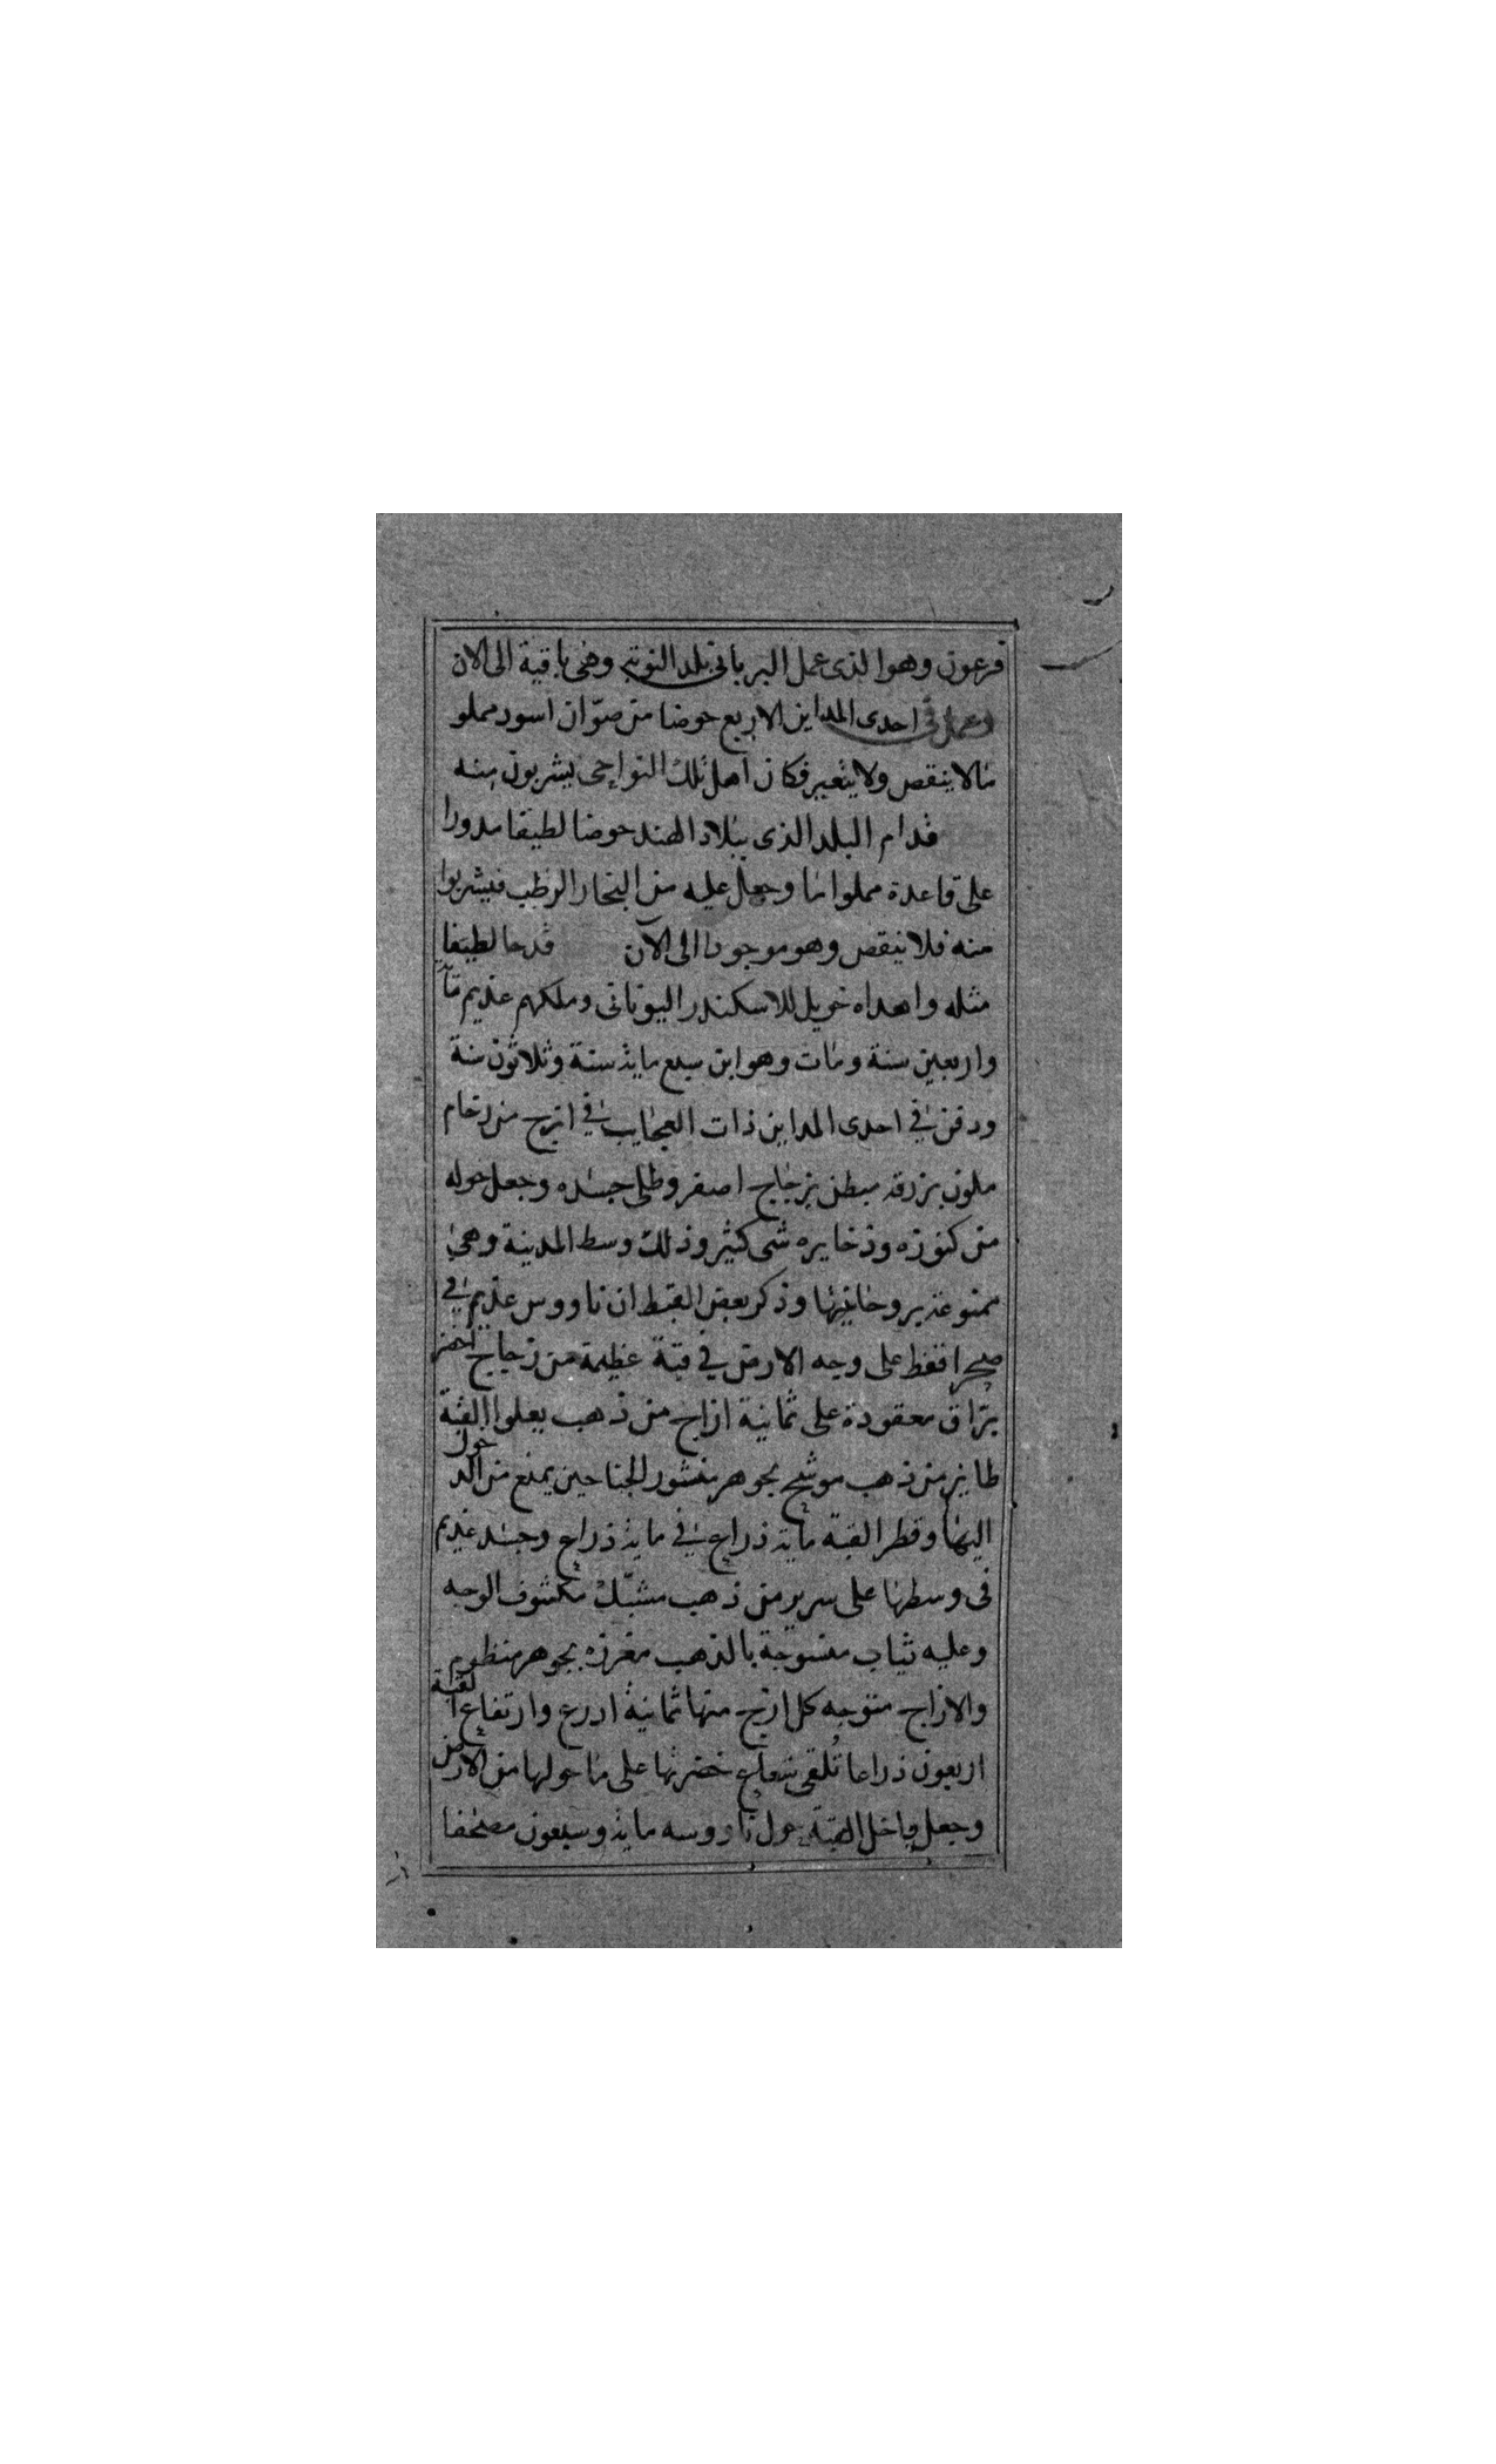 فرعون وهو الذى عمل البربا فى بلد النوبة وهى باقية الى الان
وعمل فى احدى المداين الاربع حوضا من صوّان اسود مملو
ما لا ينقص ولا يتغير فكان اهل تلك النواحى يشربون منه
قدام البلد الذى ببلاد الهند حوضا لطيفا مدورا
على قاعدة مملوا ما وجعل عليه من البخار الرطب فيشربوا
منه فلا ينقص وهو موجودا الى الآن قدحا لطيفا
مثله واهداه حويل للاسكندر اليونانى وملكهم عديم مآ
واربعين سنة ومات وهو ابن سبع ماية سنة وثلاثون سنة
ودفن فى احدى المداين ذات العجايب فى ازج من رخام
ملون بزرقة مبطن بزجاج اصفر وطلى جسده وجعل حوله
من كنوزه وذخايره شى كثير وذلك وسط المدينة وهى
ممنوعة بروحانيها وذكر بعض القبط ان ناووس عديم فى
صحرا قفط على وجه الارض فى قبة عظيمة من زجاج اخضر
برّاق معقودة على ثمانية ازاج من ذهب يعلوا القبة
طاير من ذهب موشح بجوهر منشور الجناحين يمنع من الدخول
اليها وقطر القبة ماية ذراع فى ماية ذراع وجسد عديم
فى وسطها على سرير من ذهب مشبّك مكشوف الوجه
وعليه ثياب منسوجة بالذهب مغرزه بجوهر منظوم
والازاج متوجه كل ازج منها ثمانية اذرع وارتفاع القبة
اربعون ذراعا تُلقى شعاع خضرتها على ما حولها من الارض
وجعل داخل القبة حول ناووسه ماية وسبعون مصحفا